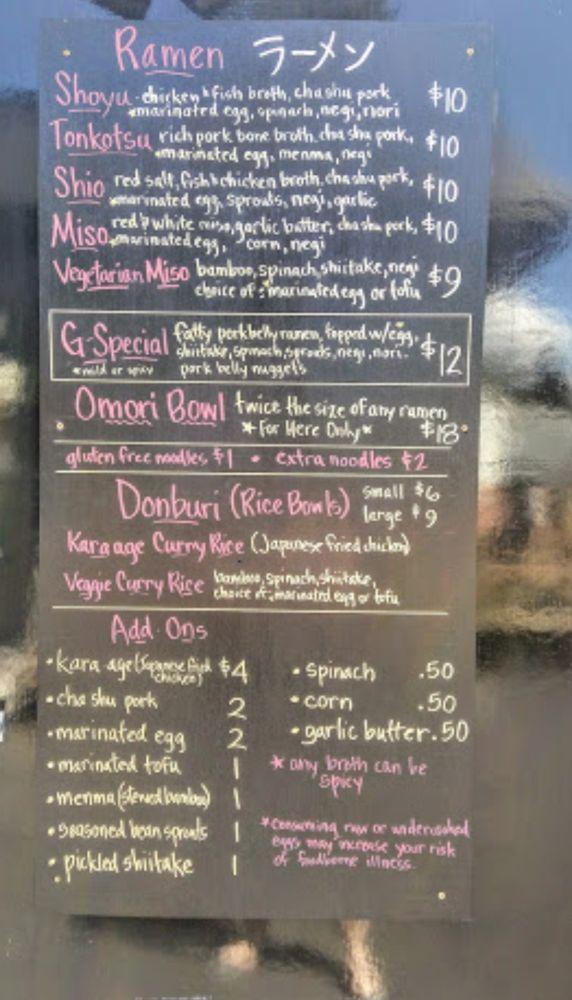 Ramen ラーメン
Shoyu - chicken & fish broth, cha shu pork $10
marinated egg, spinach, negi, nori
Tonkotsu rich pork bone broth, cha shu pork, $10
marinated egg, menma, negi
Shio red salt, fish & chicken broth, cha shu pork, $10
marinated egg, sprouts, negi, garlic
Miso red & white miso, garlic butter, cha shu pork, $10
marinated egg, corn, negi
Vegetarian Miso bamboo, spinach, shiitake, negi $9
choice of: marinated egg or tofu
G-Special fatty pork belly ramen, topped w/egg, $12
*mild or spicy shiitake, spinach, sprouts, negi, nori.
pork belly nuggets
Omori Bowl twice the size of any ramen
*For Here Only* $18
gluten free noodles $1 • extra noodles $2
Donburi (Rice Bowls) small $6
large $9
Karaage Curry Rice (Japanese fried chicken)
Veggie Curry Rice bamboo, spinach, shiitake,
choice of: marinated egg or tofu
Add-Ons
• Kara age (Japanese fried chicken) $4
• cha shu pork 2
• marinated egg 2
• marinated tofu 1
• menma (stewed bamboo) 1
• seasoned bean sprouts 1
• pickled shiitake 1
• spinach .50
• corn .50
• garlic butter .50
* any broth can be
spicy
*consuming raw or undercooked
eggs may increase your risk
of foodborne illness.